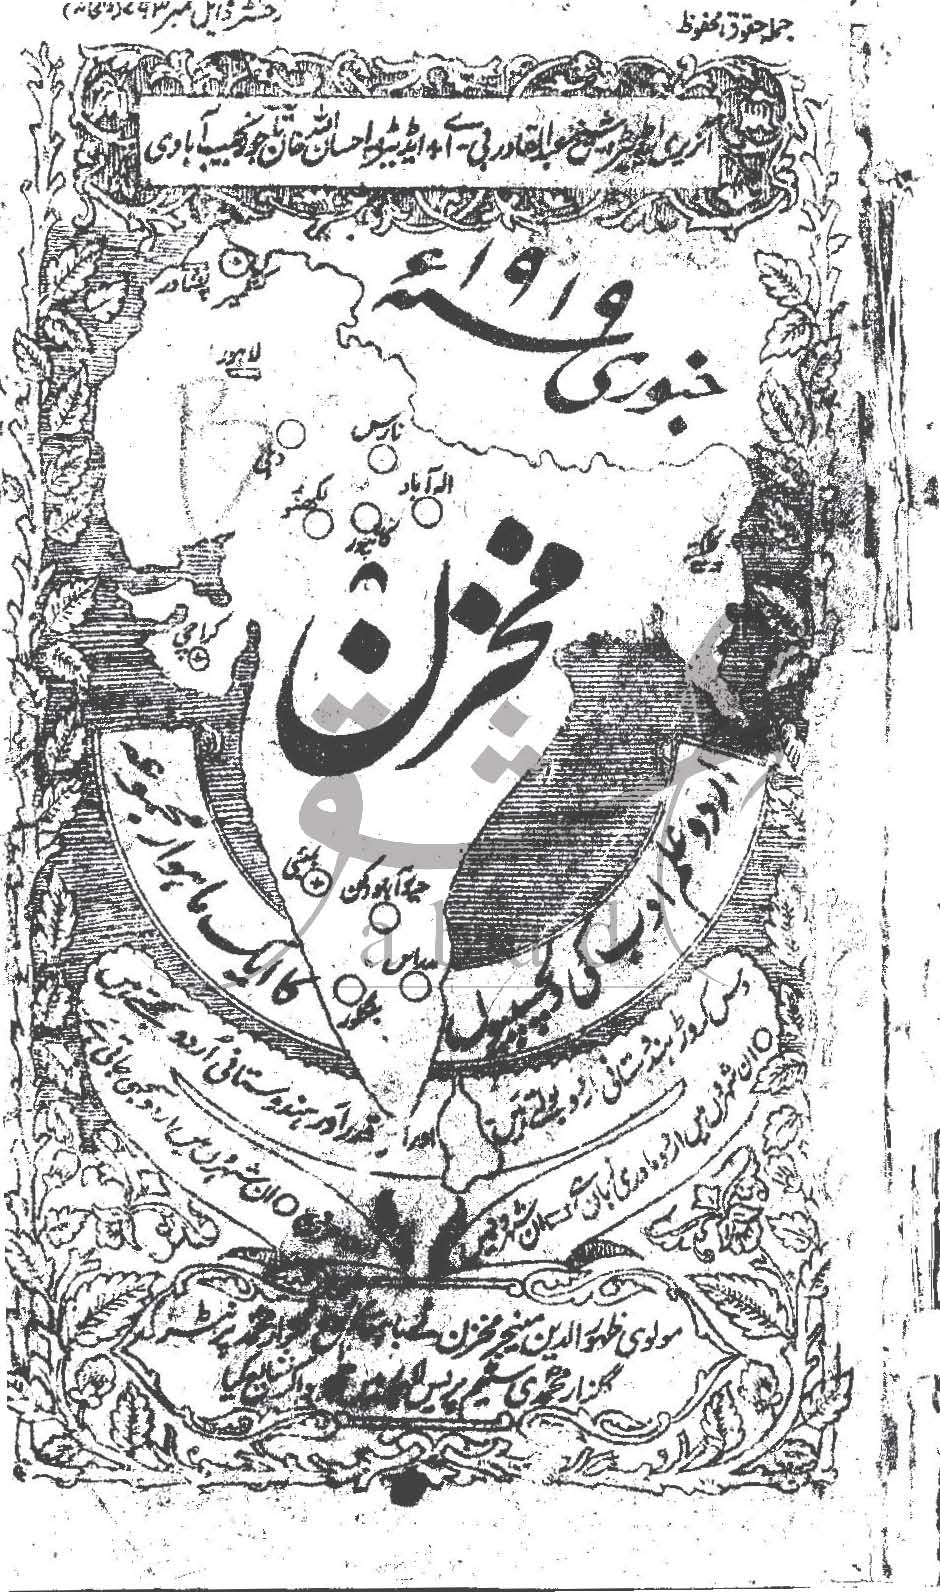 جملہ حقوق محفوظ
رجسٹرڈ ایل نمبر
آنریری ایڈیٹر شیخ عبدالقادر بی-اے + ایڈیٹر احسان اللہ خاں تاجور نجیب آبادی
جنوری ۱۹۱۹ء
پشاور
کشمیر
لاہور
دہلی
بنارس
لکھنؤ
کانپور
الہ آباد
کراچی
مخزن
اردو علم ادب کی دلچسپیوں
کا ایک ماہوار مجموعہ
بمبئی
حیدرآباد دکن
مدراس
بنگلور
دس کروڑ ہندوستانی اردو بولتے ہیں
اور ہندوستانی اردو سمجھتے ہیں
ان شہروں میں اردو مادری زبان ہے
ان شہروں میں اردو
مولوی ظہور الدین منیجر مخزن نے
گلزار محمدی سٹیم پریس لاہور
شائع کیا